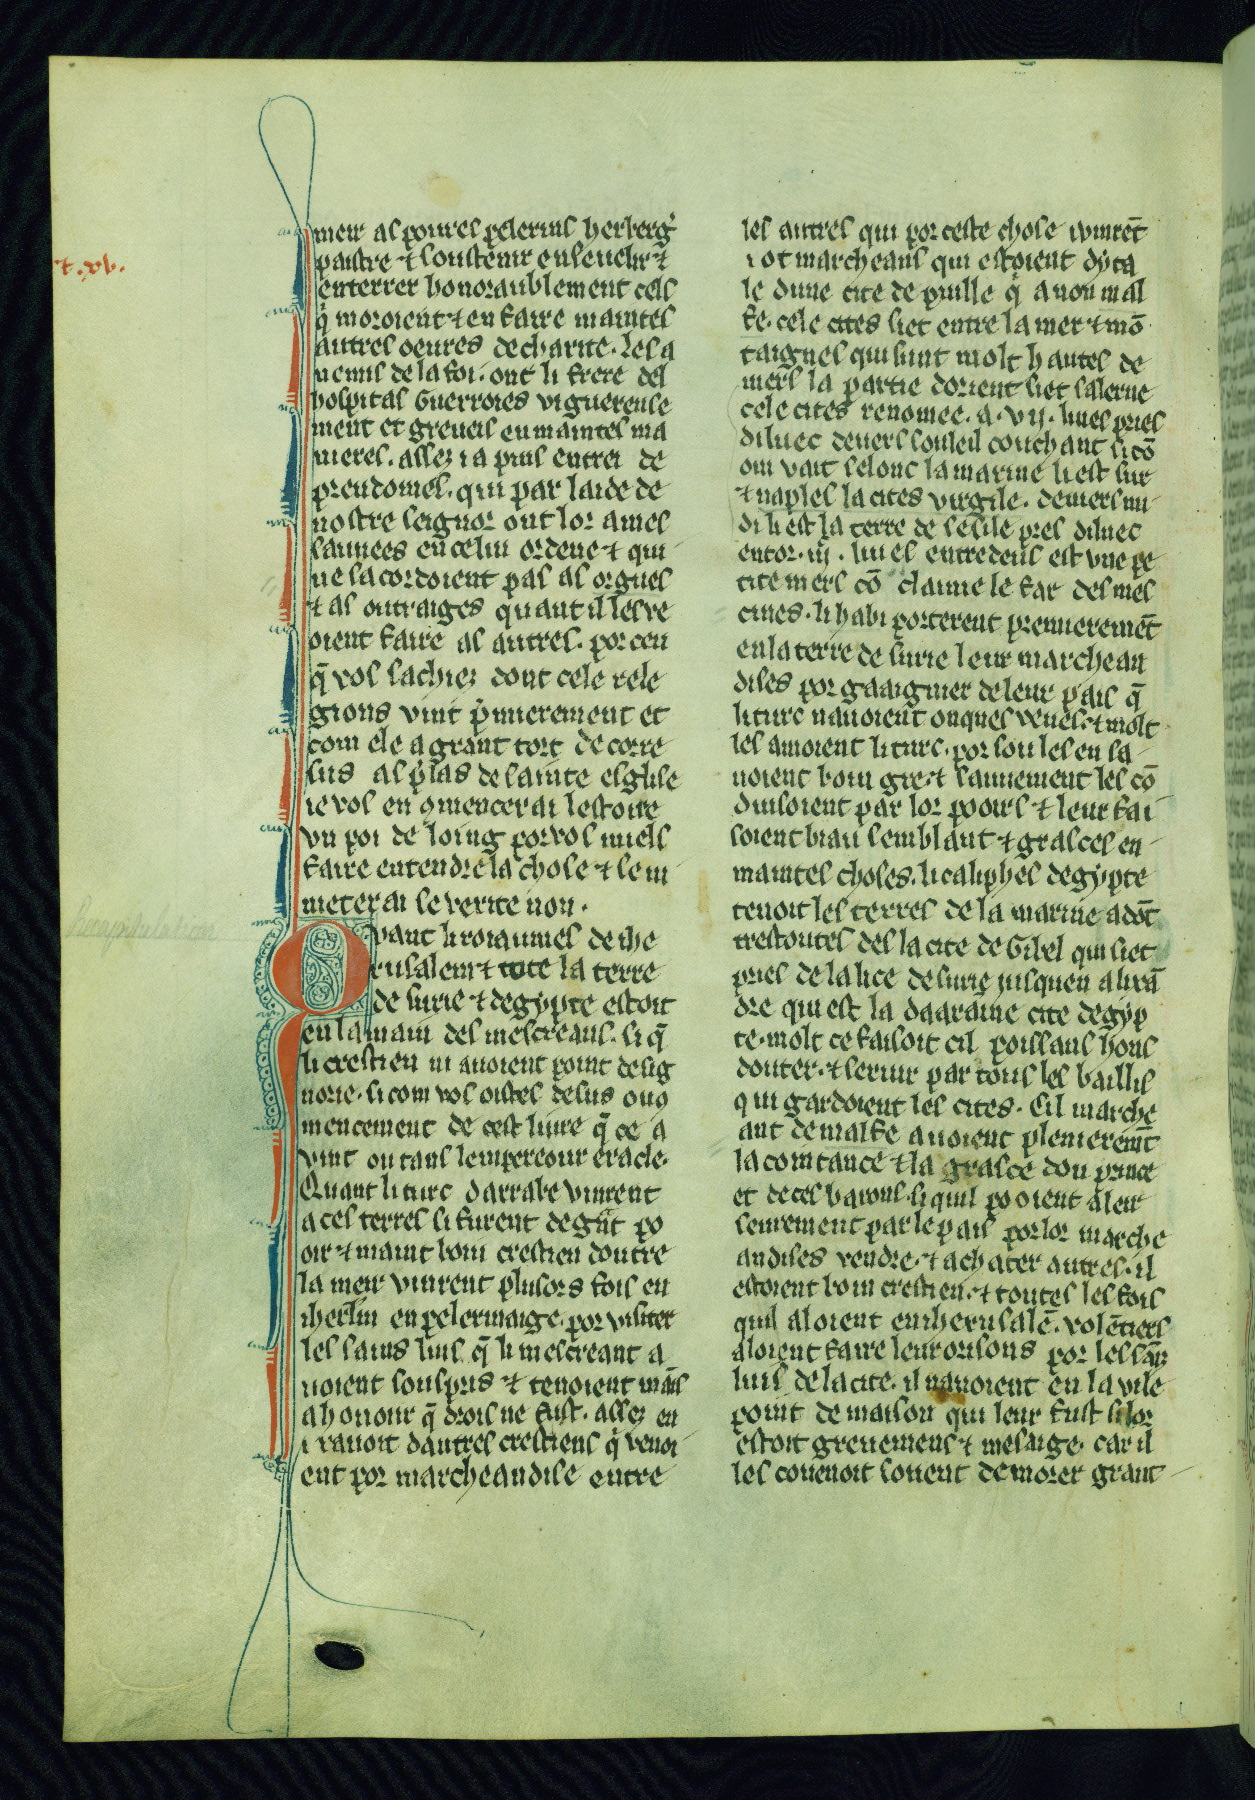 t. xv.
meir as povres pelerins herberg̾
paistre ⁊ soustenir ensevelir ⁊
enterrer honoraublement cels
q̾ moroient ⁊ en faire maintes
autres oeures de charite. Les a
nemis de la foi. ont li frere del
hospital Guerroies viguereuse
ment et greveis en maintes ma
nieres. assez i a puis entrei de
preudomes. qui par laide de
nostre seignor ont lor ames
sauvees en celui ordene ⁊ qui
ne sacordoient pas as orgues
⁊ as outraiges quant il les ve
oient faire as autres. por ceu
q̄ vos sachiez dont cele rele
gions vint p̾mierement et
com ele a grant tort de corre
sus as p̾las de sainte esglise
ie vos en ꝯmencerai lestoire
vn poi de loing por vos miels
faire entendre la chose ⁊ se ni
meterai se verite non.
Recapitulation
Qvant li roiaumes de ihe
rusalem ⁊ tote la terre
de surie ⁊ degypte estoit
en la main des mescreans. si q̄
li crestien ni avoient point de sig
norie. si com vos oistes desus ou ꝯ
mencement de cest livre q̄ ce a
vint ou tans lempereour eracle.
Quant li turc darrabe vinrent
a ces terres si furent de gn̄t po
oir ⁊ maint boin crestien doutre
la meir vinrent plusors fois en
iherl̄m en pelerinaige. por visiter
les sains lius q̄ li mescreant a
voient souspris ⁊ tenoient mais
a honour q̄ drois ne fust. assez en
i ravoit dautres crestiens q̾ venoi
ent por marcheandise entre
les autres qui por ceste chose i vinrēt
i ot marcheans qui estoient dyta
le dune cite de puille q̾ a non mal
fe. cele cites siet entre la mer ⁊ mō
taignes qui sunt molt hautes de
vers la partie dorient siet salerne
cele cites renomee. a .vij. liues pries
diluec devers souleil couchant si cō
on vait selonc la marine si est sur
⁊ naples la cites virgile. devers mi
di si est la terre de sesile pres diluec
entor .iij. liues entredeus est vne pe
tite mers cō claime le far des mes
cines. li habi porterent premieremēt
en la terre de surie leur marchean
dises por gaaignier de leur pais q̄
li turc navoient onques veues. ⁊ molt
les amoient li turc. por sou les en sa
voient boin gre. ⁊ sauvement les cō
duisoient par lor pooirs ⁊ leur fai
soient biau semblant ⁊ grasces en
maintes choses. li caliphes degypte
tenoit les terres de la marine adōt
trestoutes des la cite de Gibel qui siet
pries de la lice de surie iusquen alixā
dre qui est la daaraine cite degyp
te. molt ce faisoit cil poissans hons
douter. ⁊ servir par tous les baillis
qui gardoient les cites. Cil marche
ant de malfe avoient plenieremēt
la cointance ⁊ la grasce dou prince
et de ces barons. si quil pooient aleir
seurement par le pais por lor marche
andises vendre. ⁊ achater autres. il
estoient boin crestien. ⁊ toutes les fois
quil aloient en iherusalē. volētiers
aloient faire leur orisons por les sāīs
luis de la cite. il navoient en la vile
point de maison qui leur fust si lor
estoit grevemens ⁊ mesaige. car il
les covenoit sovent demorer grant